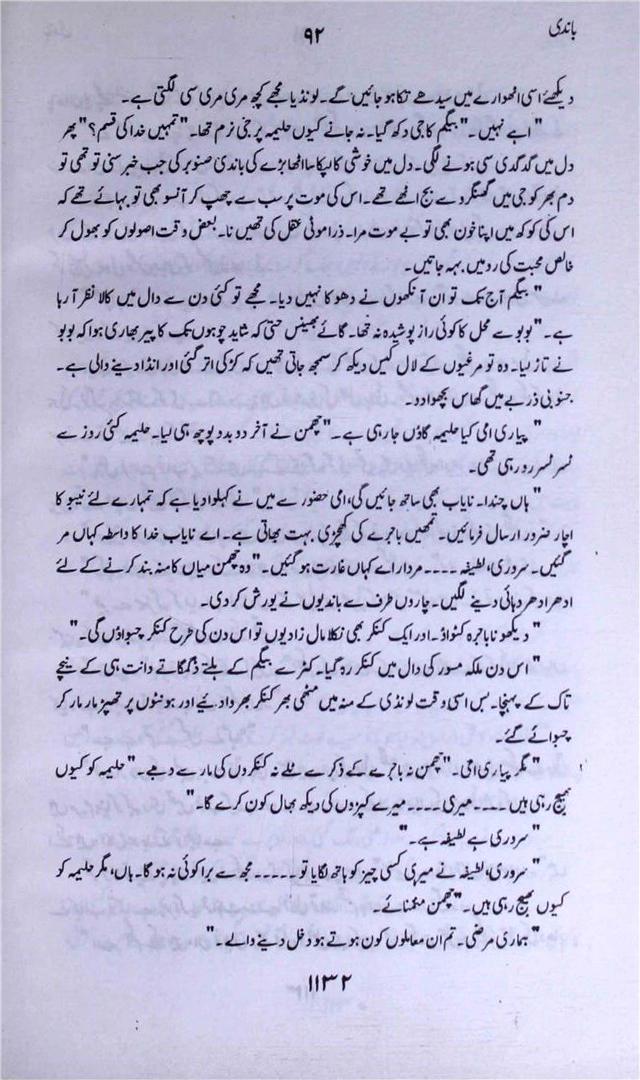 باندی
۹۲
دیکھئے اسی اٹھوارے میں سیدھے تکا ہو جائیں گے۔ لونڈیا مجھے کچھ مری مری سی لگتی ہے۔
" اے نہیں۔" بیگم کا جی دکھ گیا۔ نہ جانے کیوں حلیمہ پر جی نرم تھا۔ " تمہیں خدا کی قسم؟" پھر
دل میں گدگدی سی ہونے لگی۔ دل میں خوشی کا لپکا سا اٹھا بڑے کی باندی صنوبر کی جب خبر سنی تو تھی تو
دم بھر کو جی میں گھنگرو سے بج اٹھے تھے۔ اس کی موت پر سب سے چھپ کر آنسو بھی تو بہائے تھے کہ
اس کی کوکھ میں اپنا خون بھی تو بے موت مرا۔ ذرا موٹی عقل کی تھیں نا۔ بعض وقت اصولوں کو بھول کر
خالص محبت کی رد میں بہہ جاتیں۔
" بیگم آج تک تو ان آنکھوں نے دھوکا نہیں دیا۔ مجھے تو کئی دن سے دال میں کالا نظر آ رہا
ہے۔" بوبو سے محل کا کوئی راز پوشیدہ نہ تھا۔ گائے بھینس حتیٰ کہ شاید چوہوں تک کا پیر بھاری ہوا کہ بوبو
نے تاڑ لیا۔ وہ تو مرغیوں کے لال کیس دیکھ کر سمجھ جاتی تھیں کہ کڑکی اتر گئی اور انڈا دینے والی ہے۔
جنوبی ڈربے میں گھاس بچھوا دو۔
" پیاری امی کیا حلیمہ گاؤں جا رہی ہے۔" چھمن نے آخر دو بدو پوچھ ہی لیا۔ حلیمہ کئی روز سے
ٹسر ٹسر رو رہی تھی۔
" ہاں چندا۔ نایاب بھی ساتھ جائیں گی، امی حضور سے میں نے کہلوا دیا ہے کہ تمہارے لئے نیبو کا
اچار ضرور ارسال فرمائیں۔ تمھیں باجرے کی کھچڑی بہت بھاتی ہے۔ اے نایاب خدا کا واسطہ کہاں مر
گئیں۔ سروری، لطیفہ ۔۔۔۔ مردار اے کہاں غارت ہو گئیں۔" وہ چھمن میاں کا منہ بند کرنے کے لئے
ادھر ادھر دہائی دینے لگیں۔ چاروں طرف سے باندیوں نے یورش کر دی۔
" دیکھو نا باجرہ کٹواؤ۔ اور ایک کنکر بھی نکلا مال زادیوں تو اس دن کی طرح کنکر چبواؤں گی۔"
" اس دن ملکہ مسور کی دال میں کنکر رہ گیا۔ کھٹرے بیگم کے ہلتے ڈگمگاتے دانت ہی کے نیچے
تاک کے پہنچا۔ بس اسی وقت لونڈی کے منہ میں مٹھی بھر کنکر بھروا دیئے اور ہونٹوں پر تھپڑ مار مار کر
چبوائے گئے۔
" مگر پیاری امی۔" چھمن نہ باجرے کے ذکر سے ٹلے نہ کنکروں کی مار سے دبے۔ " حلیمہ کو کیوں
بھیج رہی ہیں ۔۔۔۔ میری ۔۔۔۔ میرے کپڑوں کی دیکھ بھال کون کرے گا۔"
" سروری ہے لطیفہ ہے۔"
" سروری، لطیفہ نے میری کسی چیز کو ہاتھ لگایا تو ۔۔۔۔۔ مجھ سے برا کوئی نہ ہو گا۔ ہاں، مگر حلیمہ کو
کیوں بھیج رہی ہیں۔" چھمن منمنائے۔
" ہماری مرضی۔ تم ان معاملوں کون ہوتے ہو دخل دینے والے۔"
۱۱۳۲